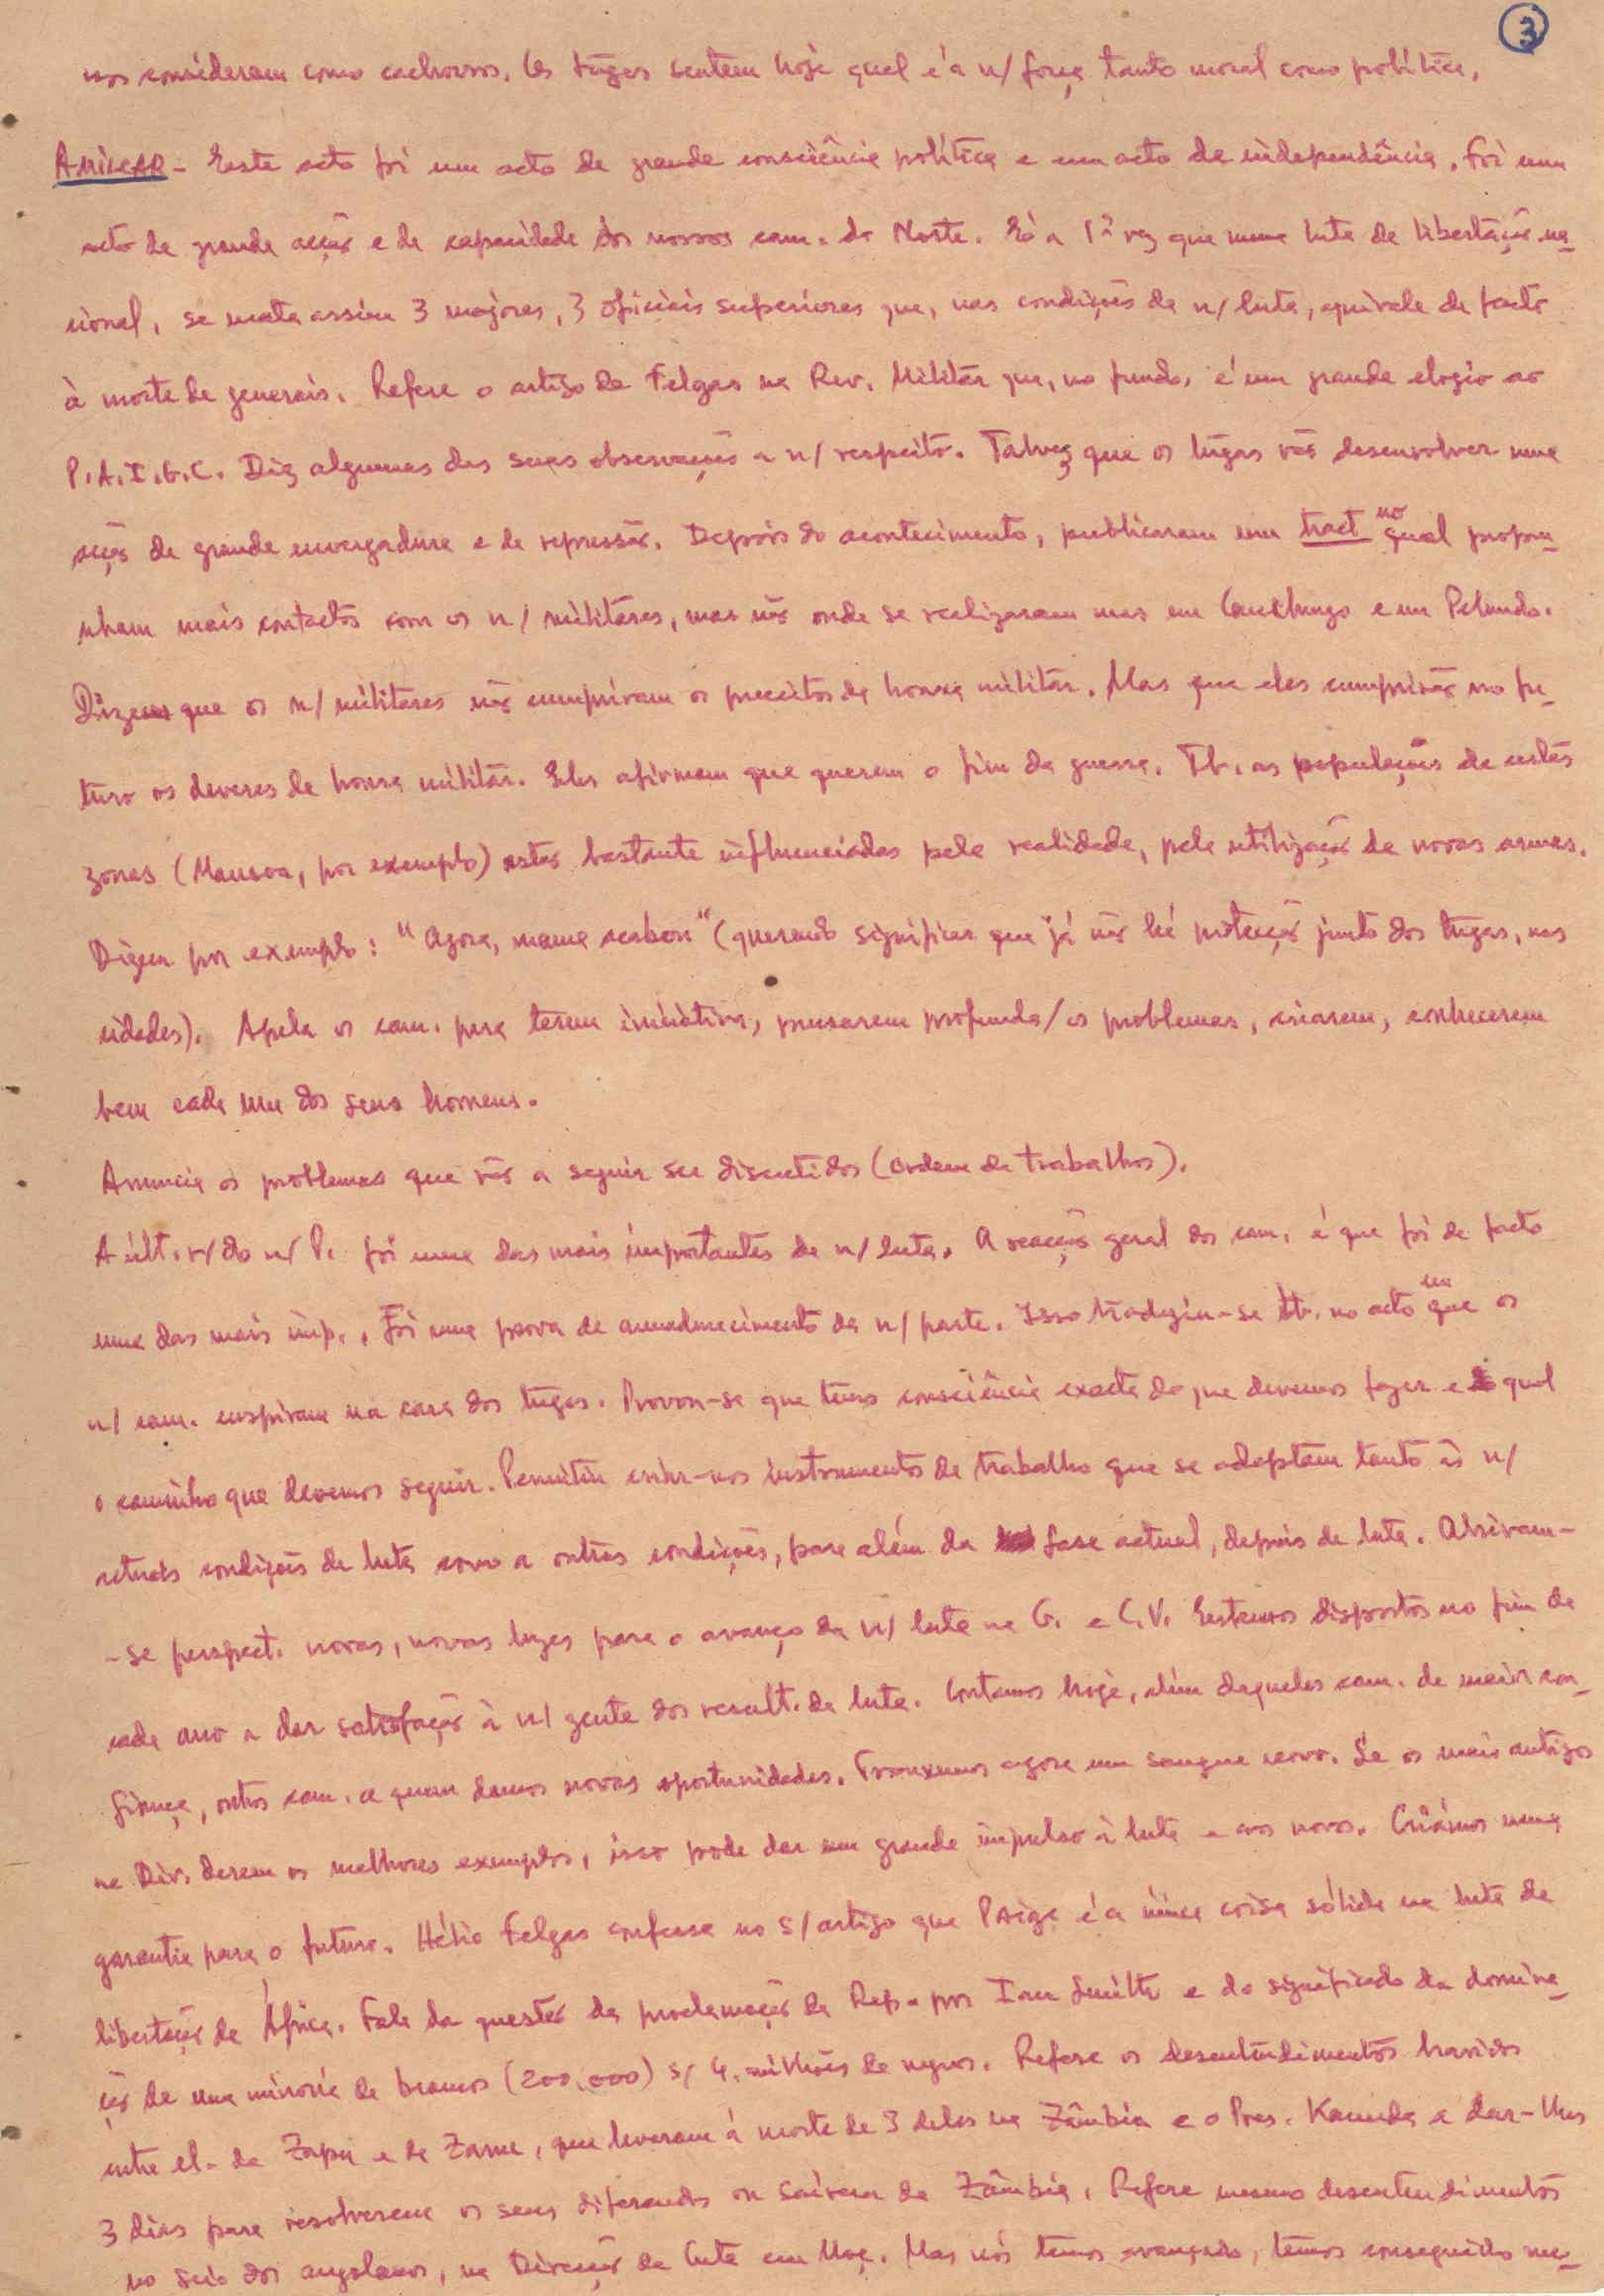 3
nos consideram como cachorros. Os tugas sentem hoje qual é a n/ força tanto moral como política.
AMILCAR - Este acto foi um acto de grande consciência política e um acto de independência. Foi um
acto de grande acção e de capacidade dos nossos cam. do Norte. É a 1ª vez que numa luta de libertação na-
cional, se mata assim 3 majores, 3 oficiais superiores que, nas condições da n/ luta, equivale de facto
à morte de generais. Refere o artigo de Felgas na Rev. Militar que, no fundo, é um grande elogio ao
P.A.I.G.C. Diz algumas das suas observações a n/ respeito. Talvez que os tugas vão desenvolver uma
acção de grande envergadura e de repressão. Depois do acontecimento, publicaram um tract no qual propu-
nham mais contactos com os n/ militares, mas não onde se realizaram mas em Canchungo e em Pelundo.
Dizem que os n/ militares não cumpriram os preceitos da honra militar. Mas que eles cumprirão no fu-
turo os deveres de honra militar. Eles afirmam que querem o fim da guerra. Tb. as populações de certas
zonas (Mansoa, por exemplo) estão bastante influenciadas pela realidade, pela utilização de novas armas.
Dizem por exemplo: "Agora, mama acabou" (querendo significar que já não há protecção junto dos tugas, nas
cidades). Apela os cam. para terem iniciativa, pensarem profunda/ os problemas, criarem, conhecerem
bem cada um dos seus homens.
Anuncia os problemas que vão a seguir ser discutidos (ordem de trabalhos).
A últ. r/ do n/ P. foi uma das mais importantes da n/ luta. A reacção geral dos cam. é que foi de facto
uma das mais imp.. Foi uma prova de amadurecimento da n/ parte. Isso traduziu-se tb. no acto em que os
n/ cam. cuspiram na cara dos tugas. Provou-se que temos consciência exacta do que devemos fazer e qual
o caminho que devemos seguir. Permitiu criar-nos instrumentos de trabalho que se adaptam tanto às n/
actuais condições de luta como a outras condições, para além da fase actual, depois da luta. Abriram-
-se perspect. novas, novas luzes para o avanço da n/ luta na G. e C.V. Estamos dispostos no fim de
cada ano a dar satisfação à n/ gente dos result. da luta. Contamos hoje, além daqueles cam. de maior con-
fiança, outros cam. a quem damos novas oportunidades. Trouxemos agora um sangue novo. Se os mais antigos
na Dir. derem os melhores exemplos, isso pode dar um grande impulso à luta e aos novos. Criámos uma
garantia para o futuro. Hélio Felgas confessa no s/ artigo que Paigc é a única coisa sólida na luta de
libertação de África. Fala da questão da proclamação da Rep. por Ian Smith e do significado da domina-
ção de uma minoria de brancos (200.000) s/ 4. milhões de negros. Refere os desentendimentos havidos
entre el. da Zapu e da Zanu, que levaram à morte de 3 deles na Zâmbia e o Pres. Kaunda a dar-lhes
3 dias para resolverem os seus diferendos ou saírem da Zâmbia. Refere mesmo desentendimentos
no seio dos angolanos, na Direcção da luta em Moç. Mas nós temos avançado, temos conseguido me-